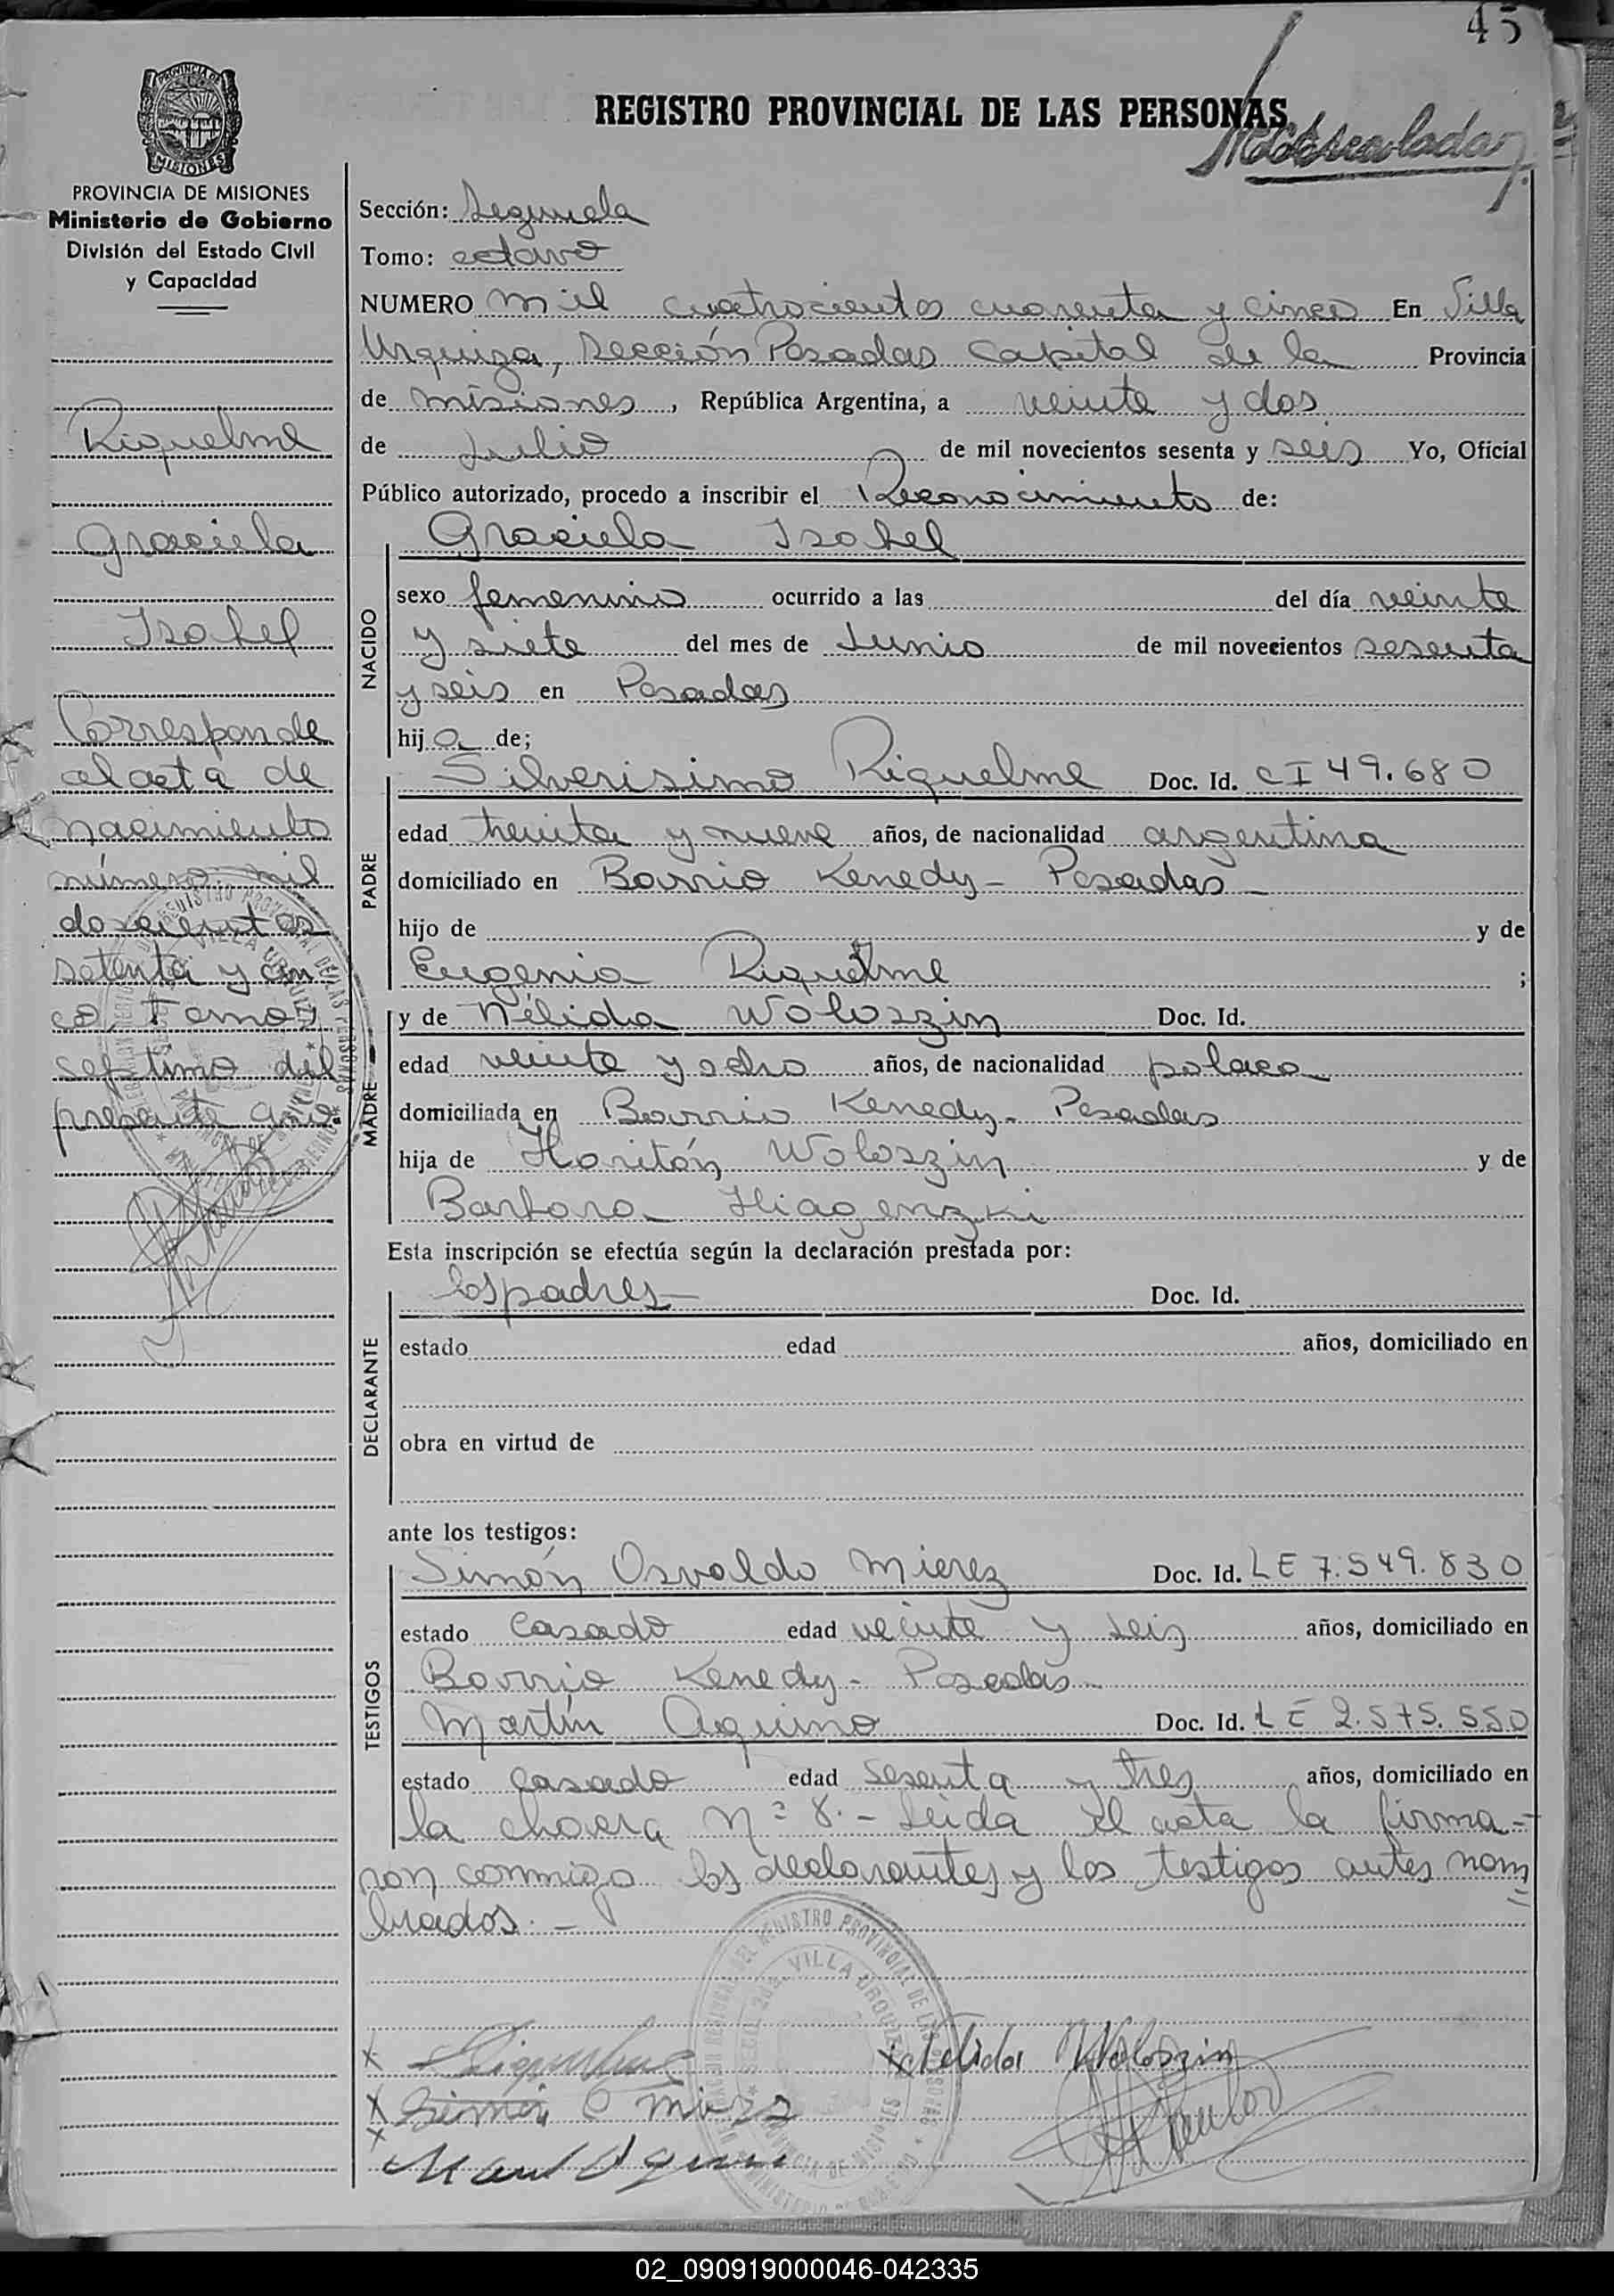 45
REGISTRO PROVINCIAL DE LAS PERSONAS
PROVINCIA DE MISIONES
Ministerio de Gobierno
División del Estado Civil
y Capacidad
Riquelme
Graciela
Isabel
Corresponde
al acta de
nacimiento
número mil
doscientos
setenta y cin
co, Tomo
septimo del
presente año.
Sección: Segunda
Tomo: octavo
NUMERO mil cuatrocientos cuarenta y cinco En Villa
Urquiza, Sección Posadas Capital de la Provincia
de misiones, República Argentina, a veinte y dos
de Julio de mil novecientos sesenta y seis Yo, Oficial
Público autorizado, procedo a inscribir el Reconocimiento de:
NACIDO
Graciela Isabel
sexo femenino ocurrido a las del día veinte
y siete del mes de Junio de mil novecientos sesenta
y seis en Posadas
hija de;
PADRE
Silverisimo Riquelme Doc. Id. CI 49.680
edad treinta y nueve años, de nacionalidad argentina
domiciliado en Barrio Kenedy - Posadas -
hijo de y de
Eugenia Riquelme ;
MADRE
y de Nélida Woloszin Doc. Id.
edad veinte y ocho años, de nacionalidad polaca
domiciliada en Barrio Kenedy - Posadas
hija de Haritón Woloszin y de
Barbara
Esta inscripción se efectúa según la declaración prestada por:
DECLARANTE
los padres - Doc. Id.
estado edad años, domiciliado en
obra en virtud de
ante los testigos:
TESTIGOS
Simón Osvaldo Mierez Doc. Id. LE 7.549.830
estado casado edad veinte y seis años, domiciliado en
Barrio Kenedy - Posadas -
Martín Aquino Doc. Id. LE 2.575.550
estado casado edad sesenta y tres años, domiciliado en
la chacra Nº 8. - Leida el acta la firma-
ron conmigo los declarantes y los testigos antes nom
brados. -
x Riquelme x Nelida Woloszin
x Simón O Mierez
x
02_090919000046-042335